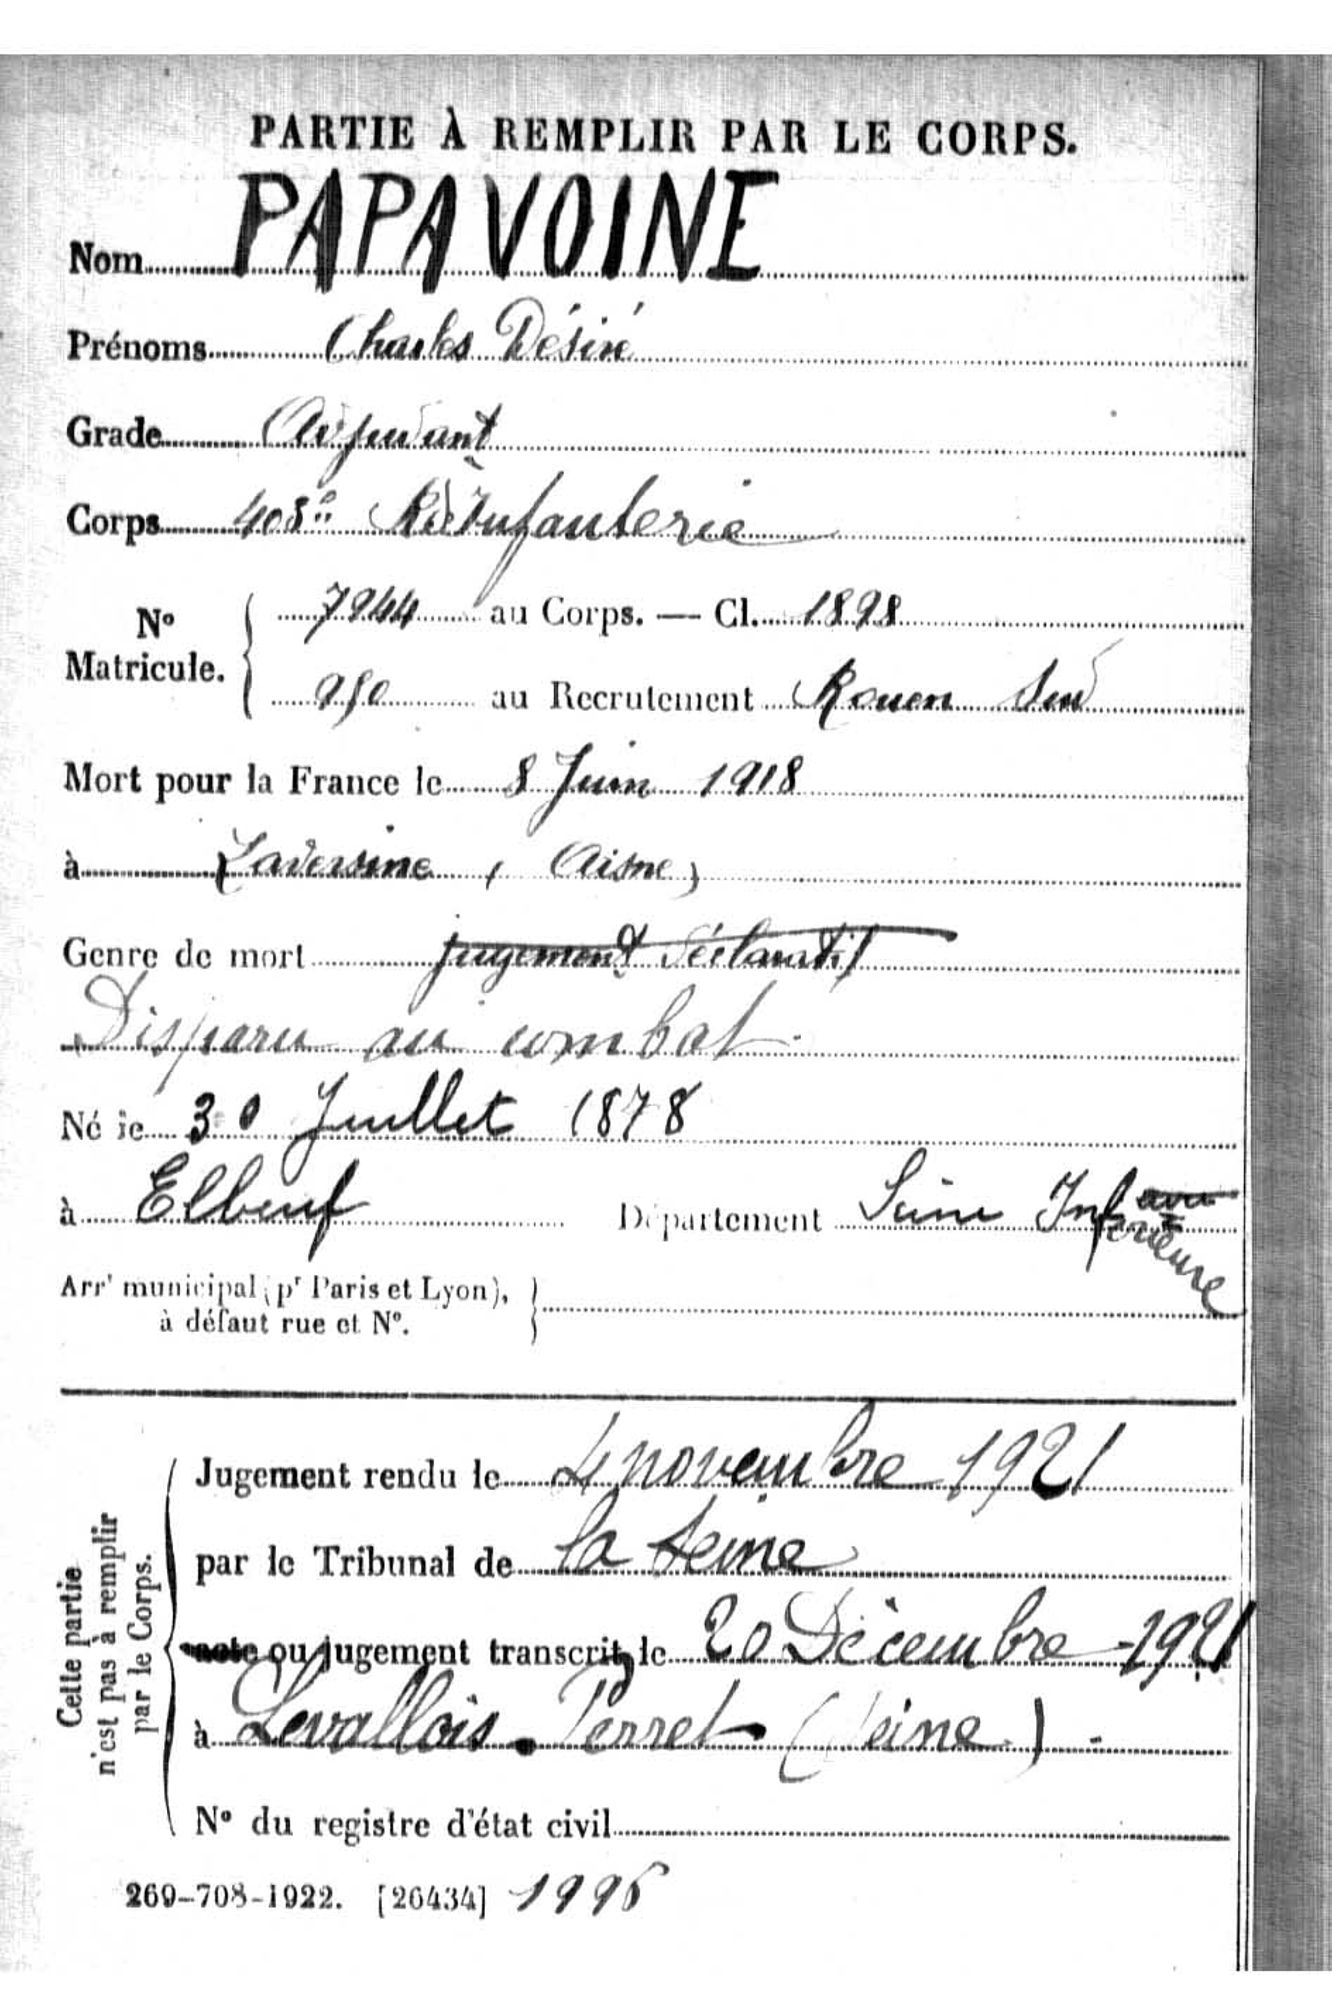 PARTIE À REMPLIR PAR LE CORPS.
Nom PAPAVOINE
Prénoms Charles Désiré
Grade Adjudant
Corps 408e R. d'Infanterie
No Matricule. 7944 au Corps. — Cl. 1898
950 au Recrutement Rouen Sud
Mort pour la France le 8 Juin 1918
à Laversine, (Aisne)
Genre de mort jugement déclaratif
Disparu au combat.
Né le 30 Juillet 1878
à Elbeuf Département Seine Inférieure
Arrt municipal (pr Paris et Lyon),
à défaut rue et No.
Cette partie
n'est pas à remplir
par le Corps.
Jugement rendu le 4 novembre 1921
par le Tribunal de la Seine
acte ou jugement transcrit le 20 Décembre 1921
à Levallois-Perret (Seine) -
No du registre d'état civil
269-708-1922. [26434] 1996